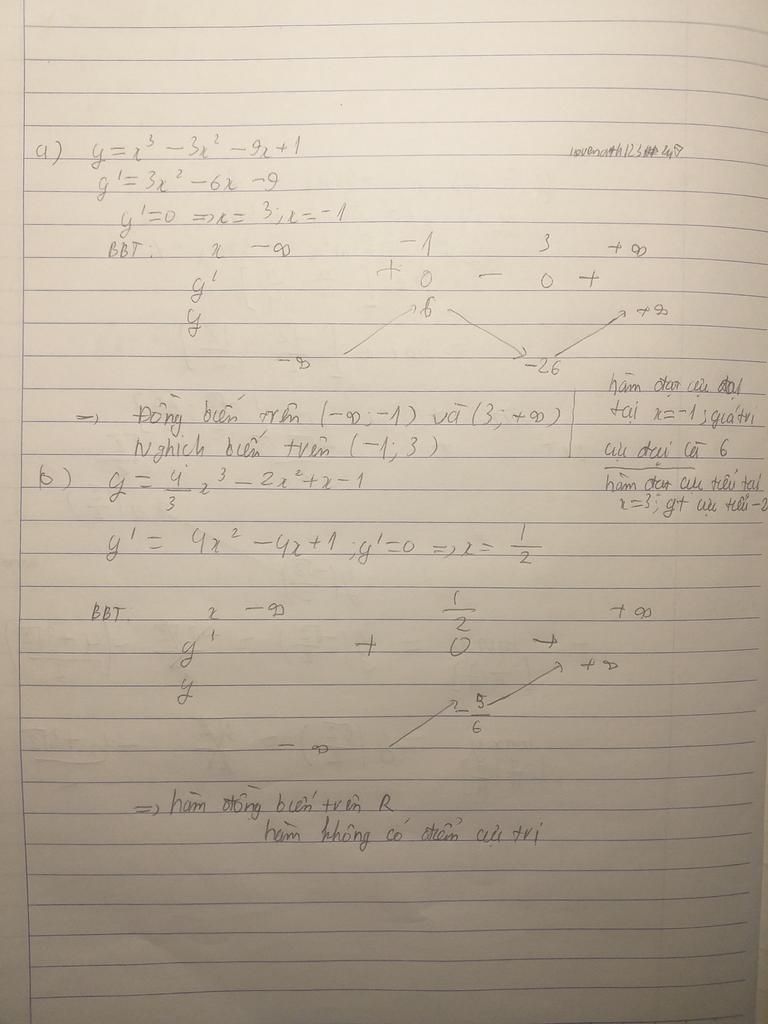 a) y = x³ - 3x² - 9x + 1
y' = 3x² - 6x - 9
y' = 0 => x = 3 ; x = -1
BBT: x -∞ -1 3 +∞
y' + 0 - 0 +
y 6 +∞
-∞ -26
=> Đồng biến trên (-∞; -1) và (3; +∞)
Nghịch biến trên (-1; 3)
hàm đạt cực đại
tại x = -1 ; giá trị
cực đại là 6
hàm đạt cực tiểu tại
x = 3 ; gt cực tiểu -2
b) y = 4/3 x³ - 2x² + x - 1
y' = 4x² - 4x + 1 ; y' = 0 => x = 1/2
BBT. x -∞ 1/2 +∞
y' + 0 +
y +∞
-5/6
-∞
=> hàm đồng biến trên R
hàm không có điểm cực trị